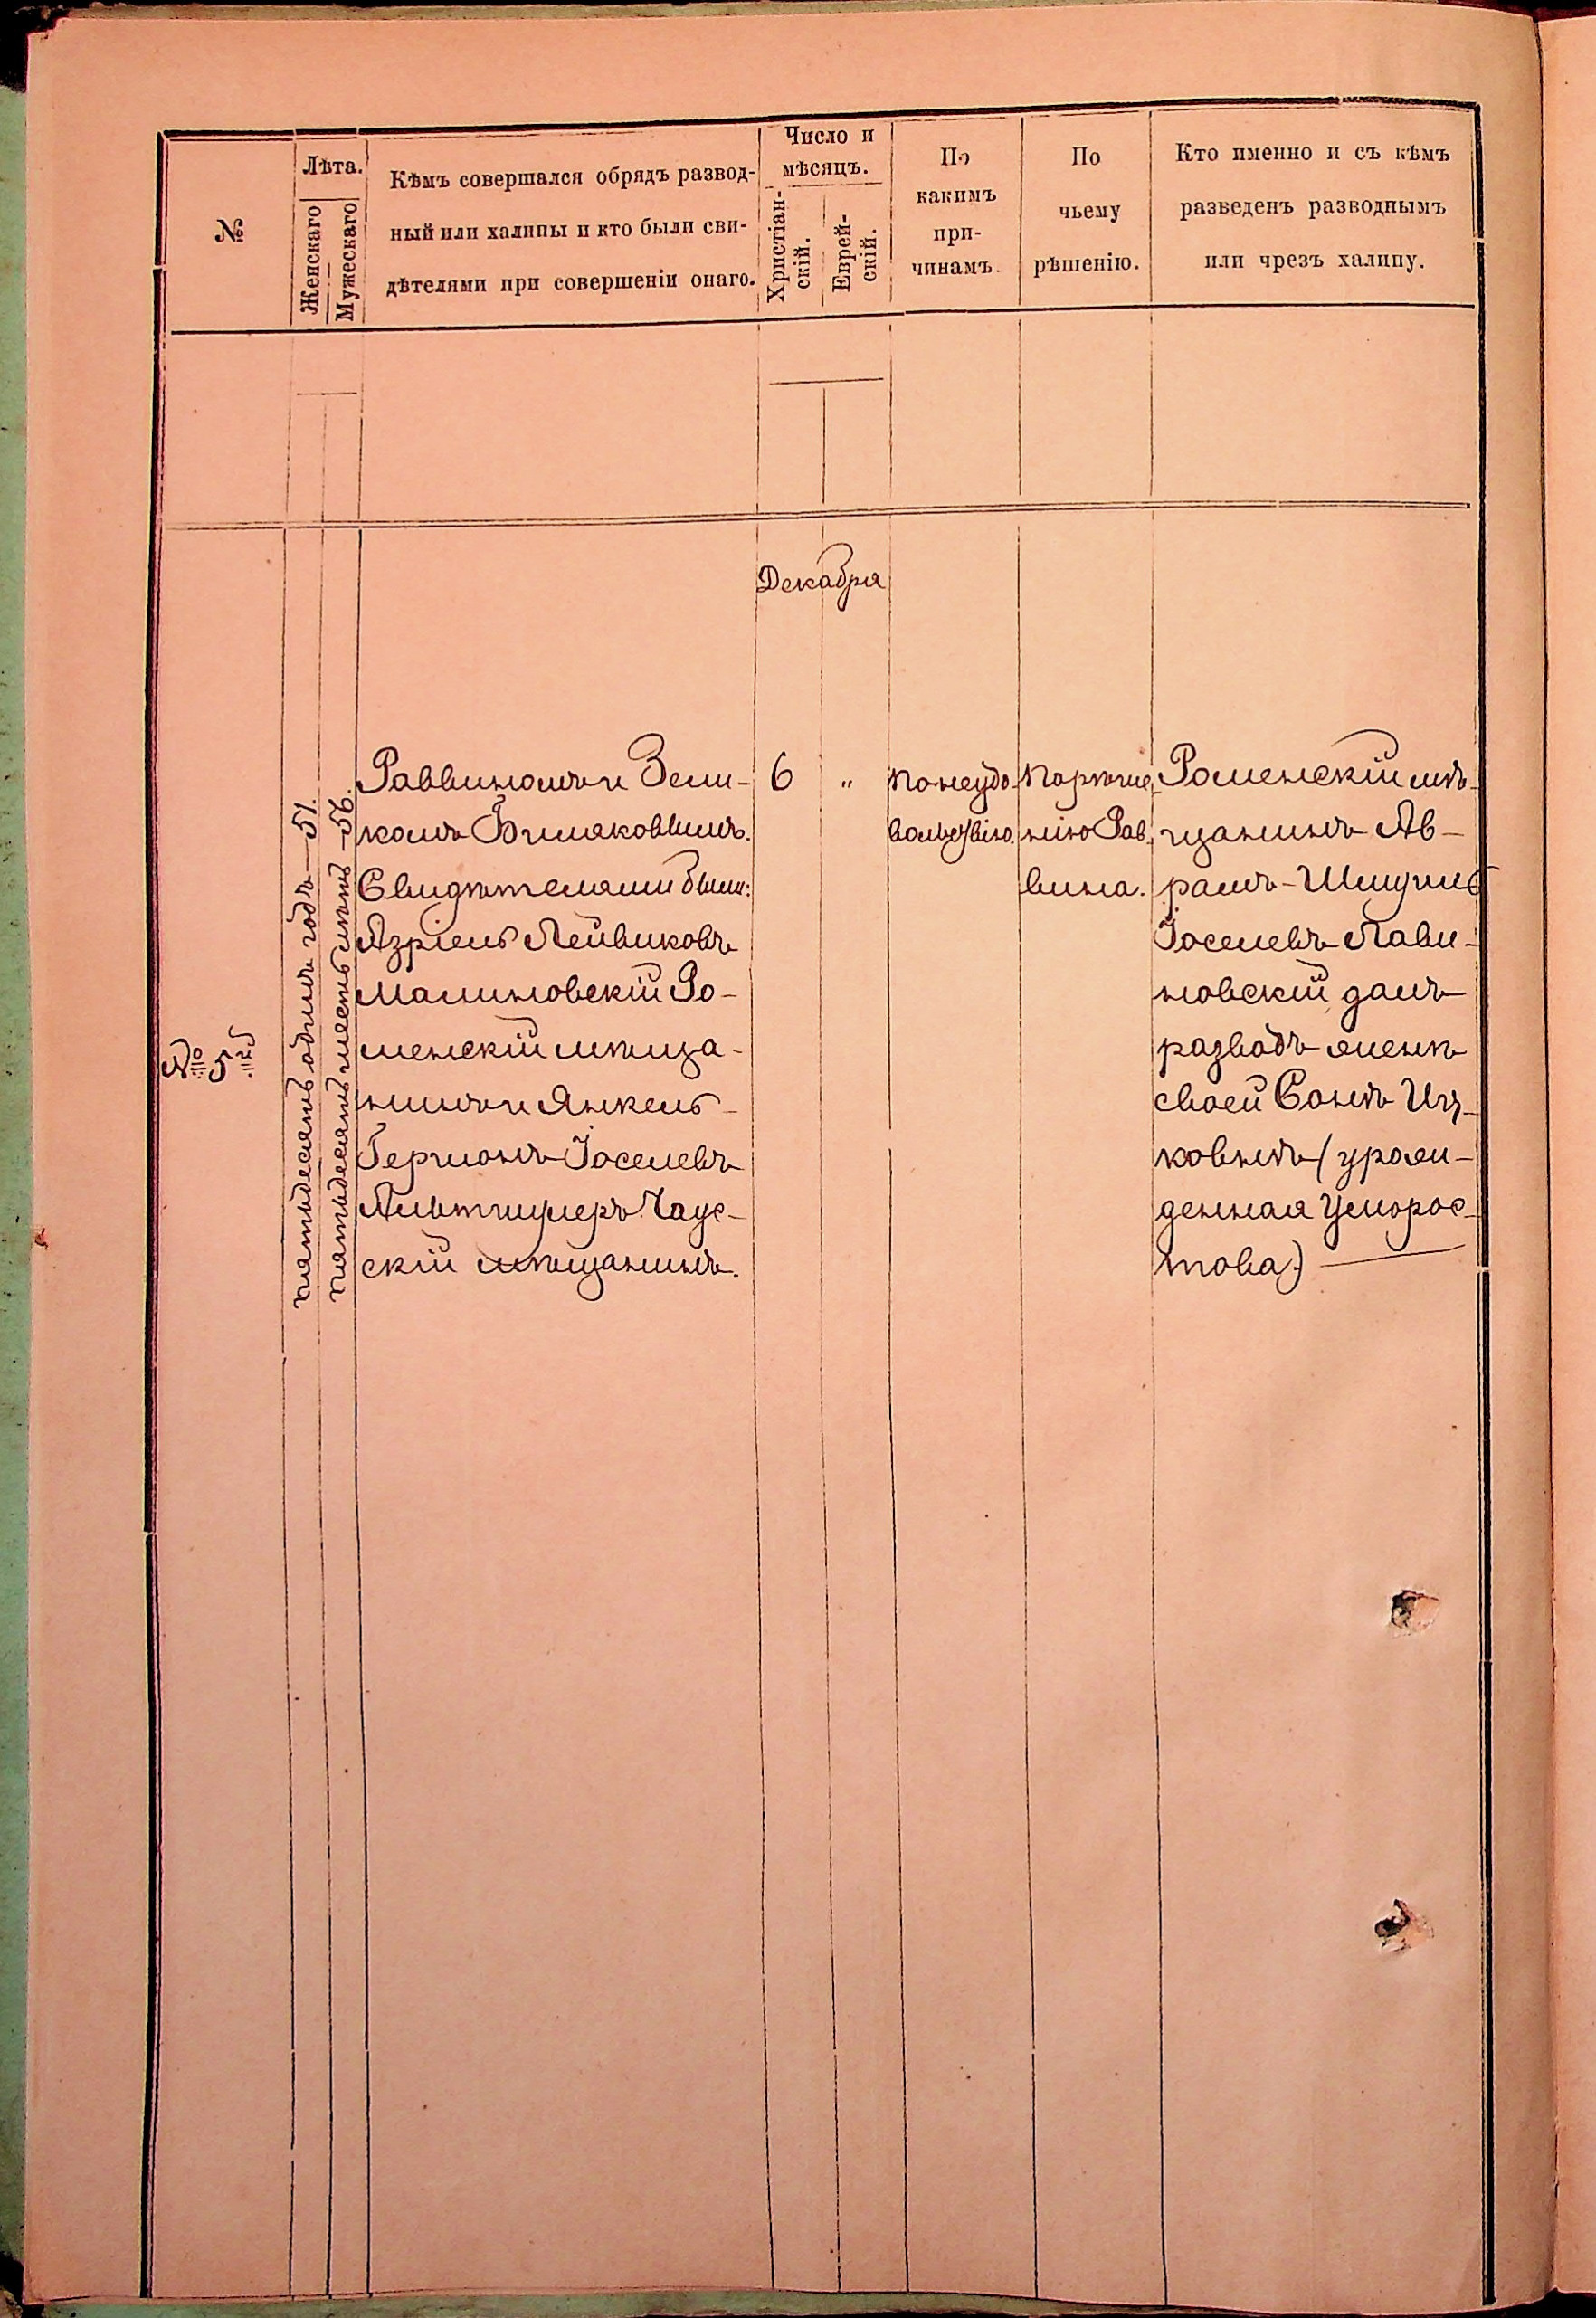 №
Лѣта.
Женскаго
Мужескаго
Кѣмъ совершался обрядъ развод-
ный или халицы и кто были сви-
дѣтелями при совершеніи онаго.
Число и
мѣсяцъ.
Христіан-
скій.
Еврей-
скій.
По
какимъ
при-
чинамъ.
По
чьему
рѣшенію.
Кто именно и съ кѣмъ
разведенъ разводнымъ
или чрезъ халицу.
Декабря
№ 5й
пятьдесятъ одинъ годъ — 51.
пятьдесятъ шесть лѣтъ — 56.
Раввиномъ и Зели-
комъ
Свидѣтелями были:
Азріель Лейвиковъ
Малиновскій Ро-
менскій мѣща-
нинъ и Янкель-
Гершонъ Іоселевъ
Альтшулеръ Чаус-
скій мѣщанинъ.
6
"
По неудо-
вольствію.
По рѣше-
нію Рав-
вина.
Роменскій мѣ-
щанинъ Ав-
рамъ-Шмуиль
Іоселевъ Лави-
новскій далъ
разводъ женѣ
своей Сонѣ Иц-
ковнѣ (урож-
денная
това)